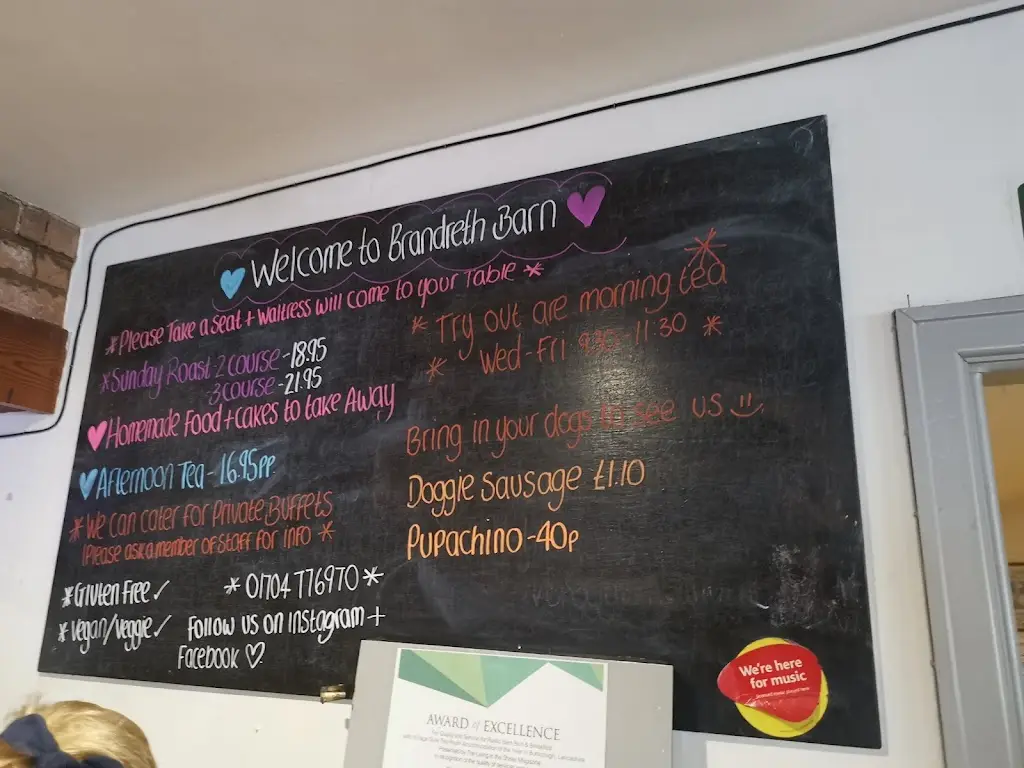 Welcome to Brandreth Barn
*Please Take a seat + Waitress will come to your Table *
*Sunday Roast-2 course -18.95
-3 course -21.95
Homemade Food + cakes to take Away
Afternoon Tea - 16.95pp
*We can cater for Private Buffets
(Please ask a member of Staff for info *
*Gluten Free ✓
*Vegan/Veggie ✓
*01704 776970*
Follow us on instagram +
Facebook ♡
* Try out are morning tea
* Wed-Fri 9:30-11:30 *
Bring in your dogs to see us
Doggie Sausage £1.10
Pupachino -40p
We're here
for music
AWARD of EXCELLENCE